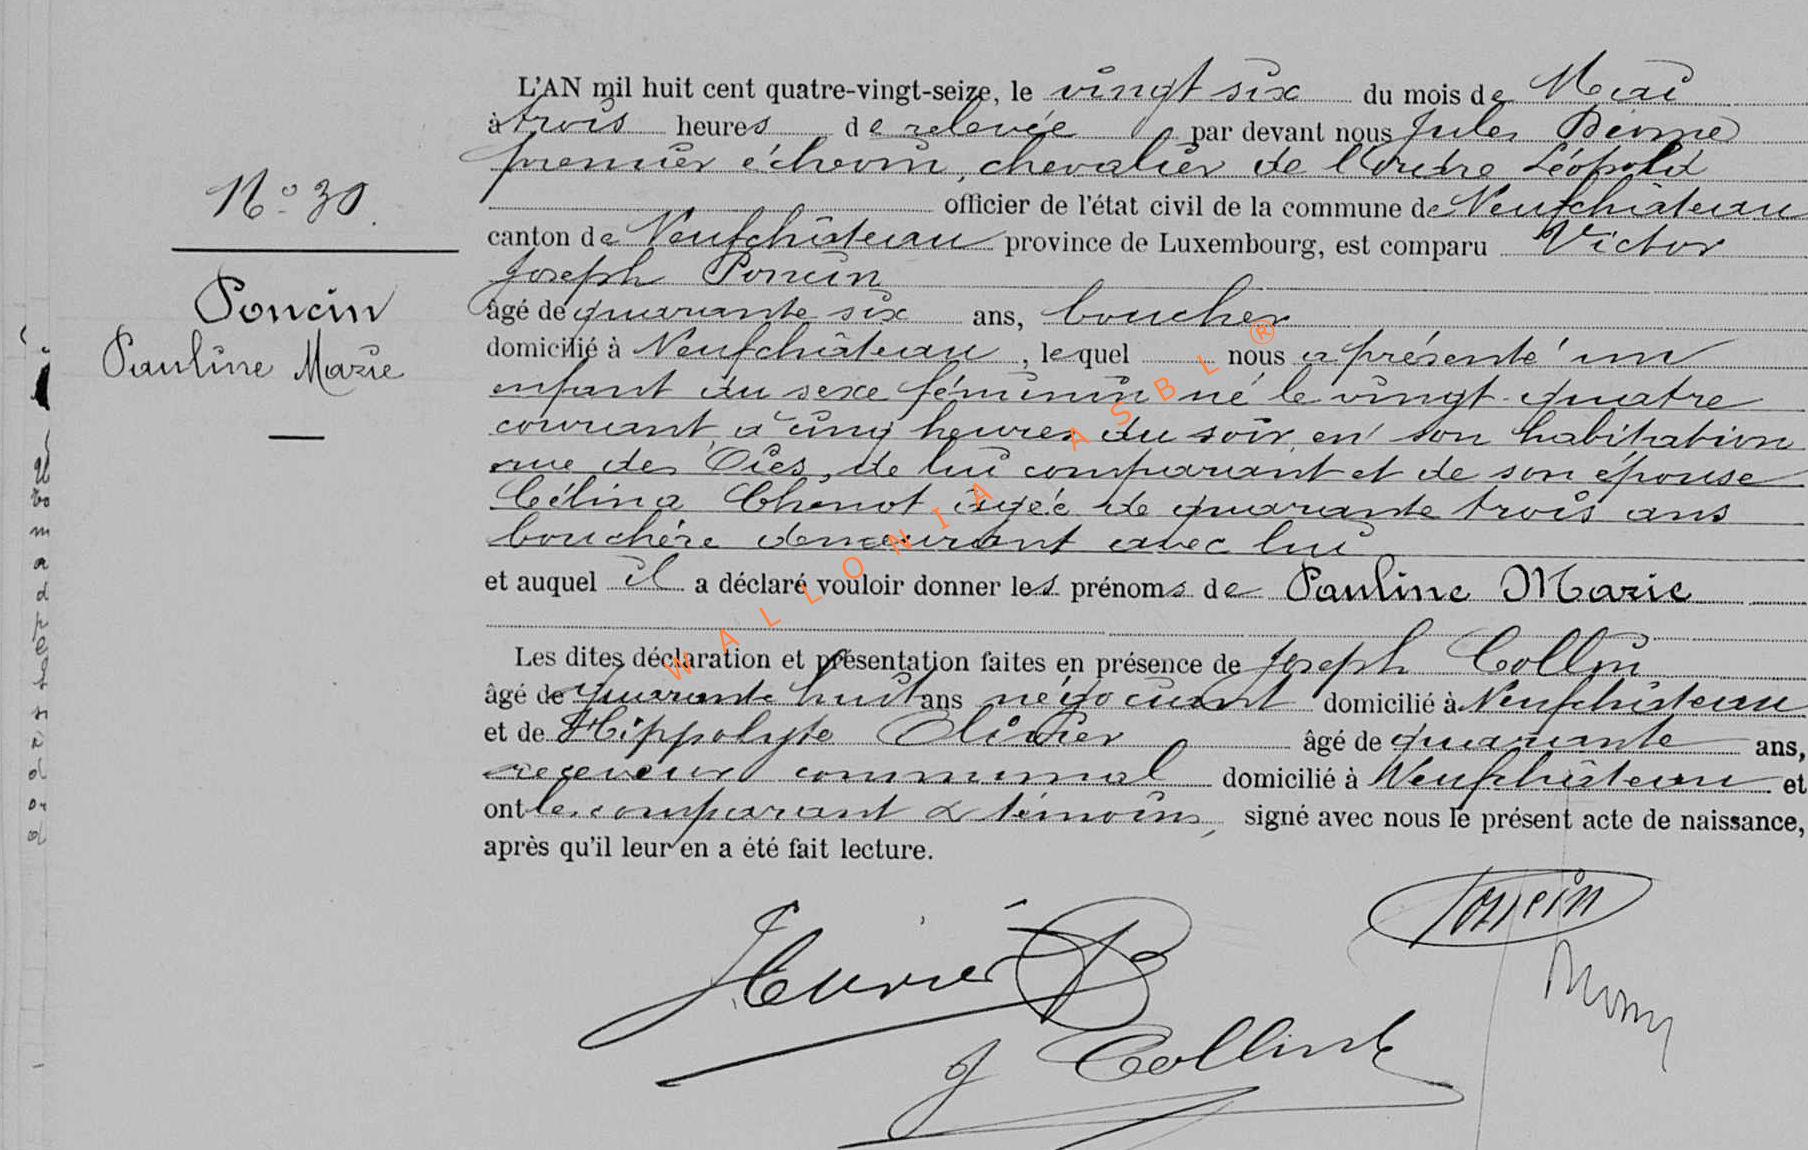 L'AN mil huit cent quatre-vingt-seize, le vingt six du mois de Mai
à trois heures de relevée par devant nous Jules
premier échevin, chevalier de l'Ordre Léopold
N° 30
officier de l'état civil de la commune de Neufchâteau
canton de Neufchâteau province de Luxembourg, est comparu Victor
Joseph Poncin
Poncin
Pauline Marie
âgé de quarante six ans, boucher
domicilié à Neufchâteau, lequel nous a présenté un
enfant du sexe féminin né le vingt-quatre
courant, à cinq heures du soir, en son habitation
rue des Oies, de lui comparant et de son épouse
Célina Chenot âgée de quarante trois ans
bouchère demeurant avec lui
et auquel il a déclaré vouloir donner les prénoms de Pauline Marie
Les dites déclaration et présentation faites en présence de Joseph Collin
âgé de quarante huit ans négociant domicilié à Neufchâteau
et de Hippolyte Olivier âgé de quarante ans,
receveur communal domicilié à Neufchâteau et
ont les comparant & témoins, signé avec nous le présent acte de naissance,
après qu'il leur en a été fait lecture.
Poncin
J Collin
WALLONIA ASBL ®